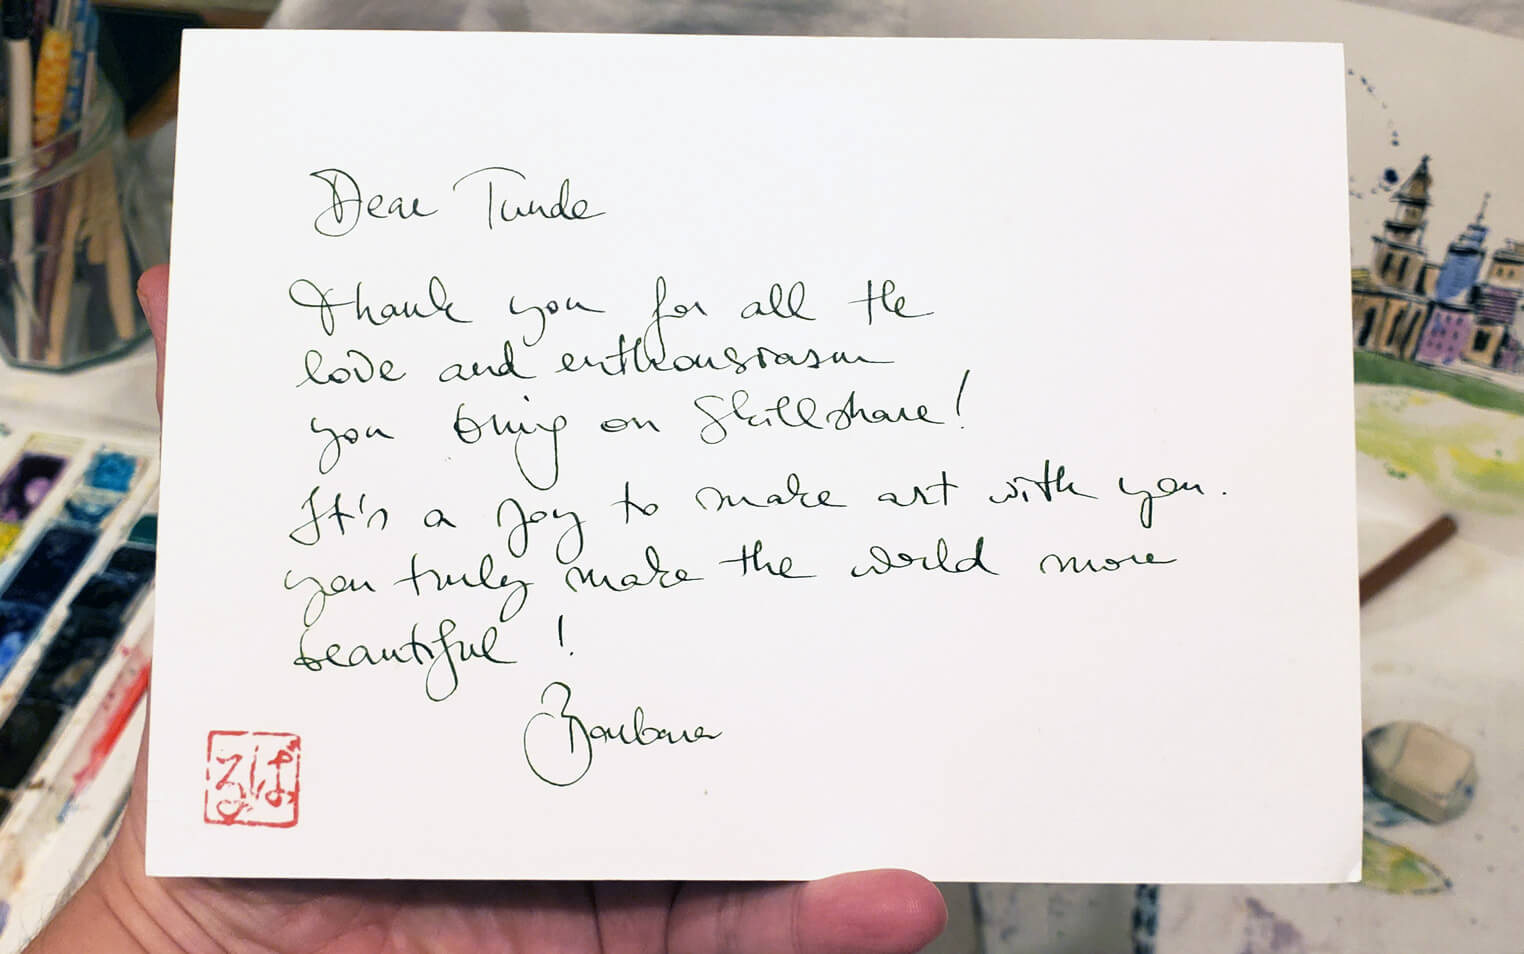 Dear Tunde
Thank you for all the
love and enthousiasm
you bring on Skillshare!
It's a joy to make art with you.
you truly make the world more
beautiful !
Barbara
ばる